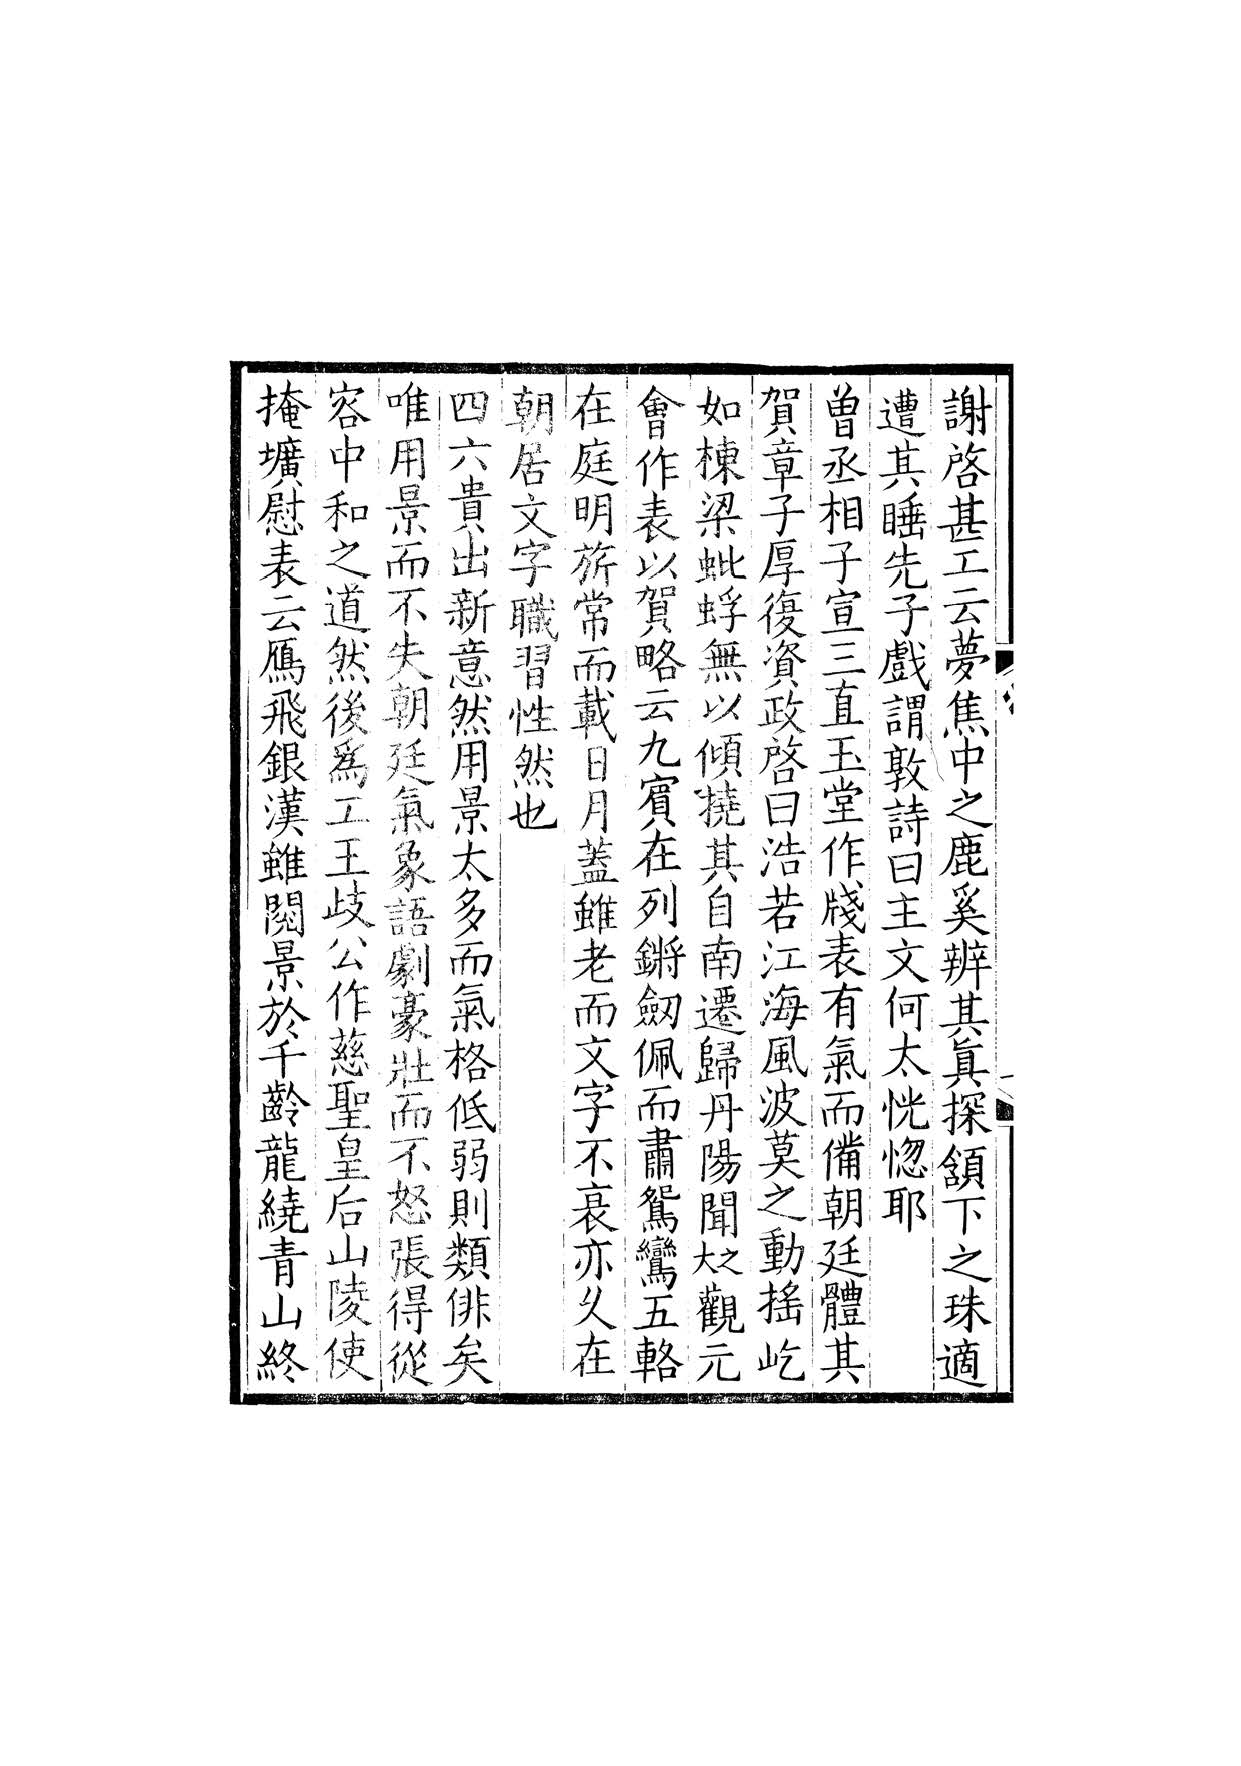 謝啓甚工云夢焦中之鹿奚辨其眞探頷下之珠適
遭其睡先子戲謂敦詩曰主文何太恍惚耶
曾丞相子宣三直玉堂作牋表有氣而備朝廷體其
賀章子厚復資政啓曰浩若江海風波莫之動搖屹
如棟梁蚍蜉無以傾撓其自南遷歸丹陽聞之大觀元
會作表以賀略云九賓在列鏘劔佩而肅鴛鸞五輅
在庭明旂常而載日月蓋雖老而文字不衰亦乆在
朝居文字職習性然也
四六貴出新意然用景太多而氣格低弱則類俳矣
唯用景而不失朝廷氣象語劇豪壯而不怒張得從
容中和之道然後爲工王歧公作慈聖皇后山陵使
掩壙慰表云鴈飛銀漢雖閱景於千齡龍繞青山終